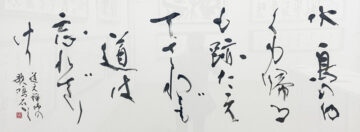 水鳥のゆ
くも帰る
も跡たえ
てされども
道は
忘れざり
けり
道元禅師の